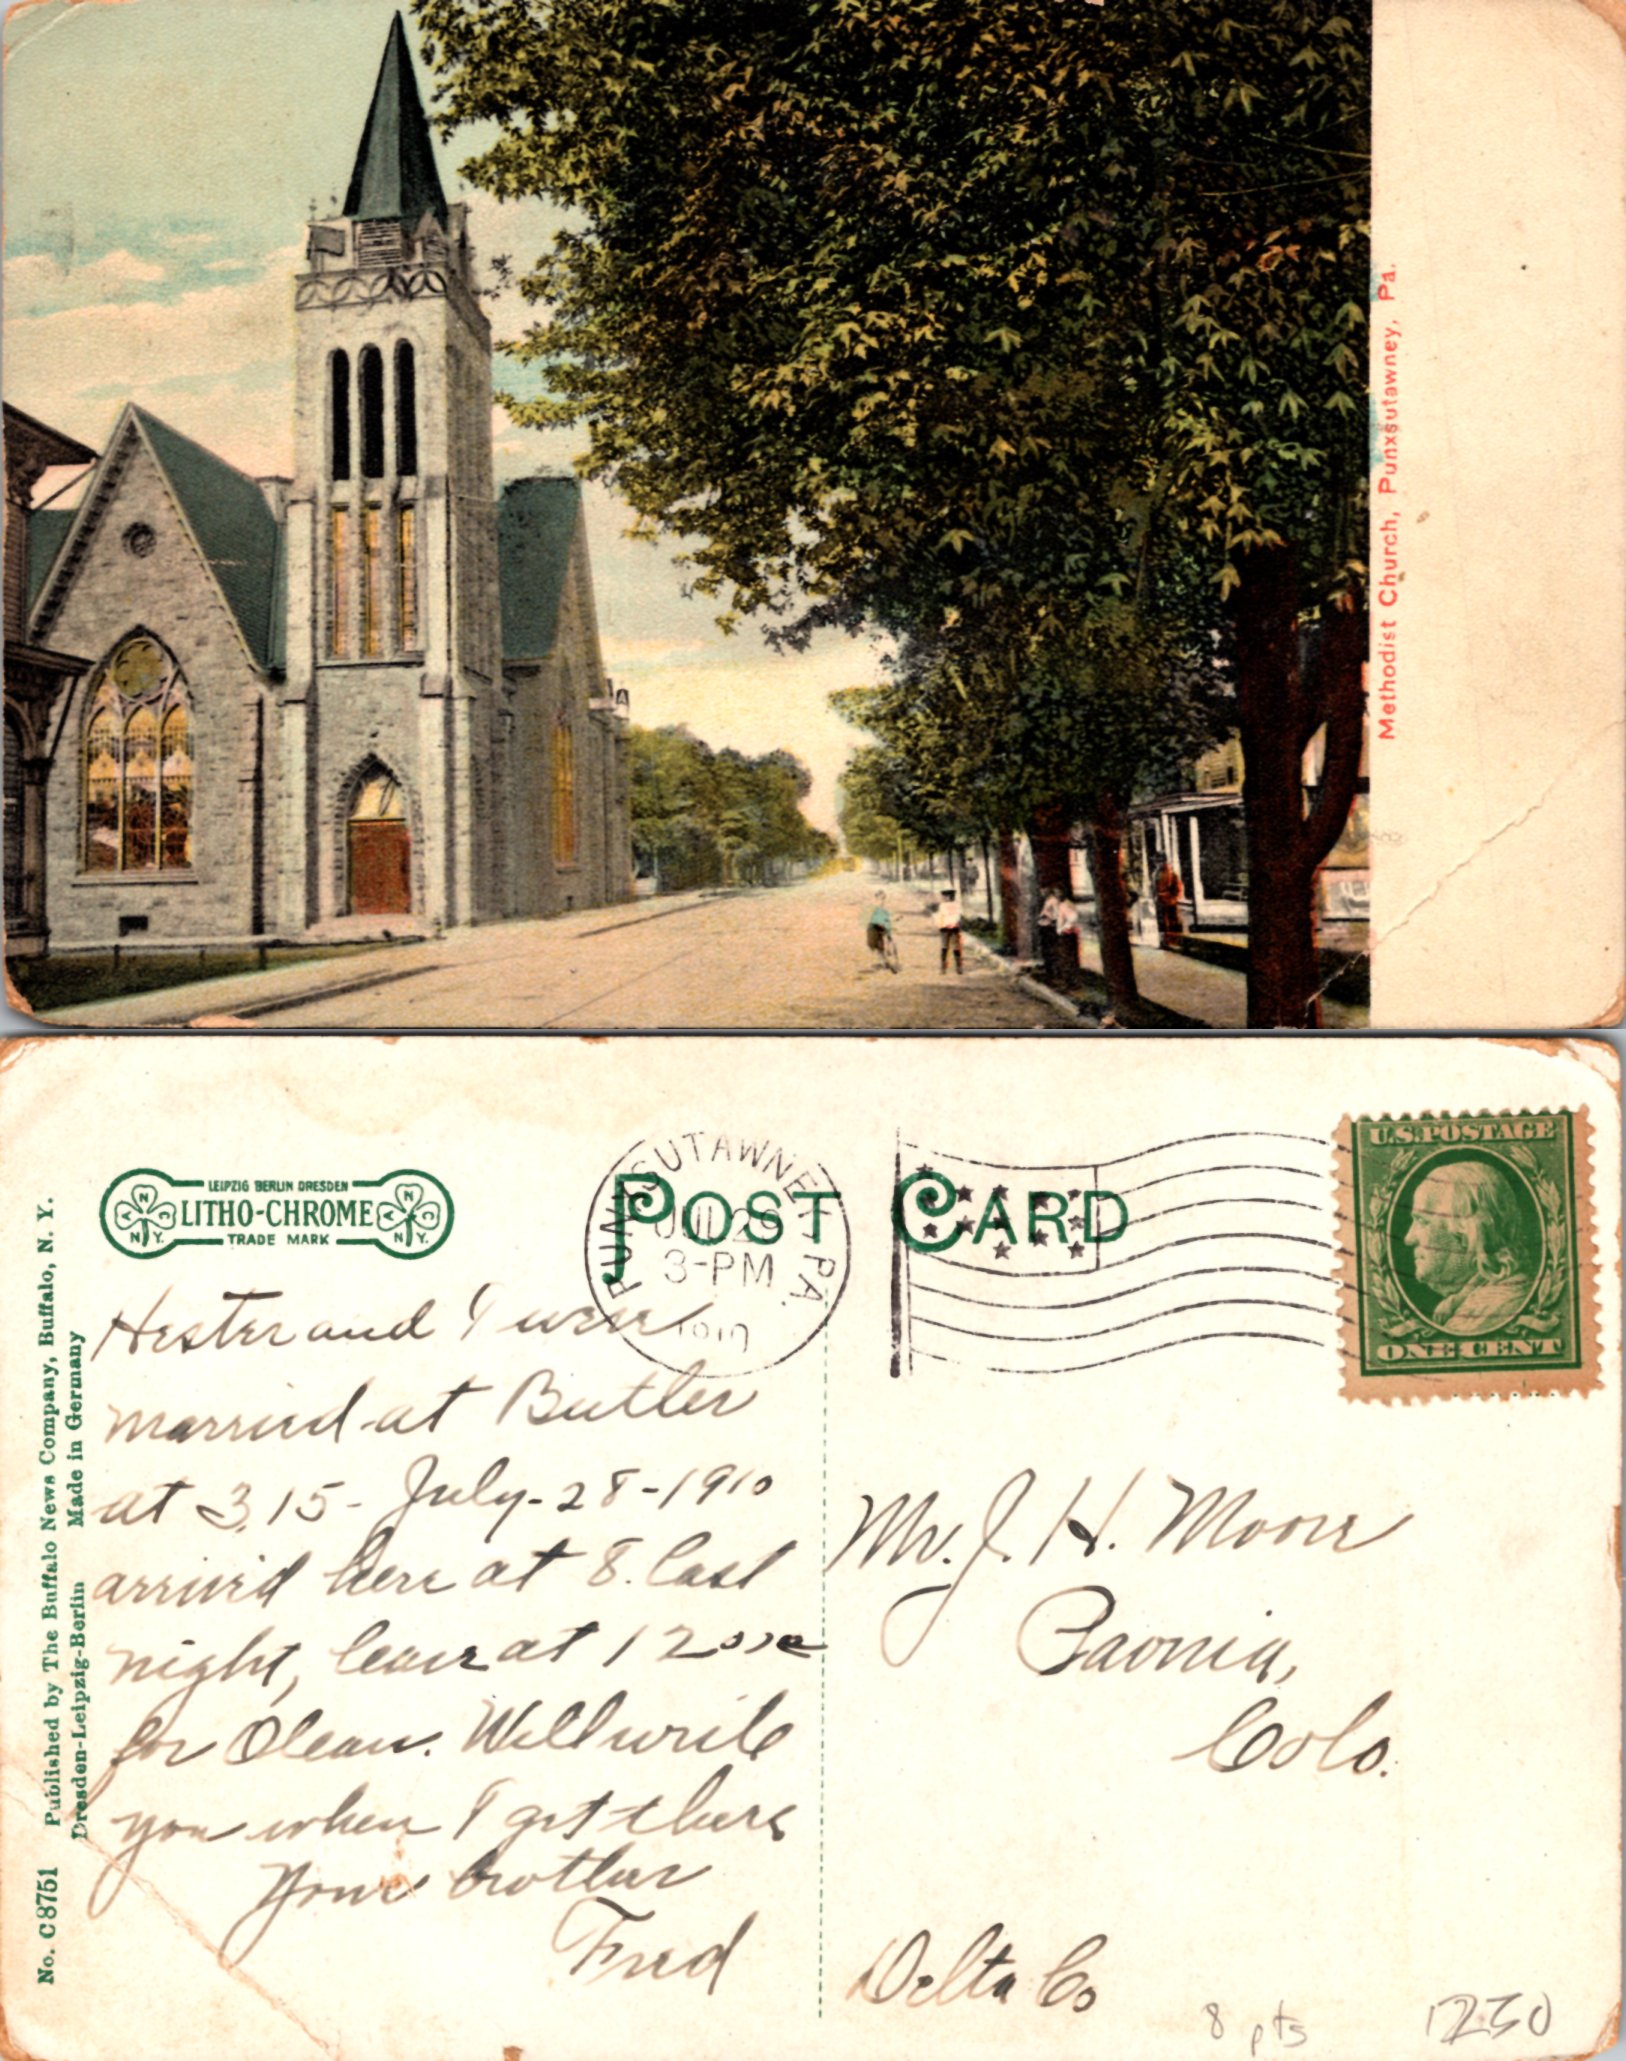 Methodist Church, Punxsutawney, Pa.
LEIPZIG BERLIN DRESDEN
LITHO-CHROME
TRADE MARK
POST CARD
PUNXSUTAWNEY, PA.
JUL 29
3-PM
1910
U.S. POSTAGE
ONE CENT
No. C8751 Published by The Buffalo News Company, Buffalo, N. Y.
Dresden-Leipzig-Berlin Made in Germany
Hester and I were
married at Butler
at 3.15 - July - 28 - 1910
arrived here at 8. last
night, leave at 12
for Olean. Will write
you when I get there
Your brother
Fred
Mr. J. H. Moore
Paonia,
Colo.
Delta Co
8 pts
1250